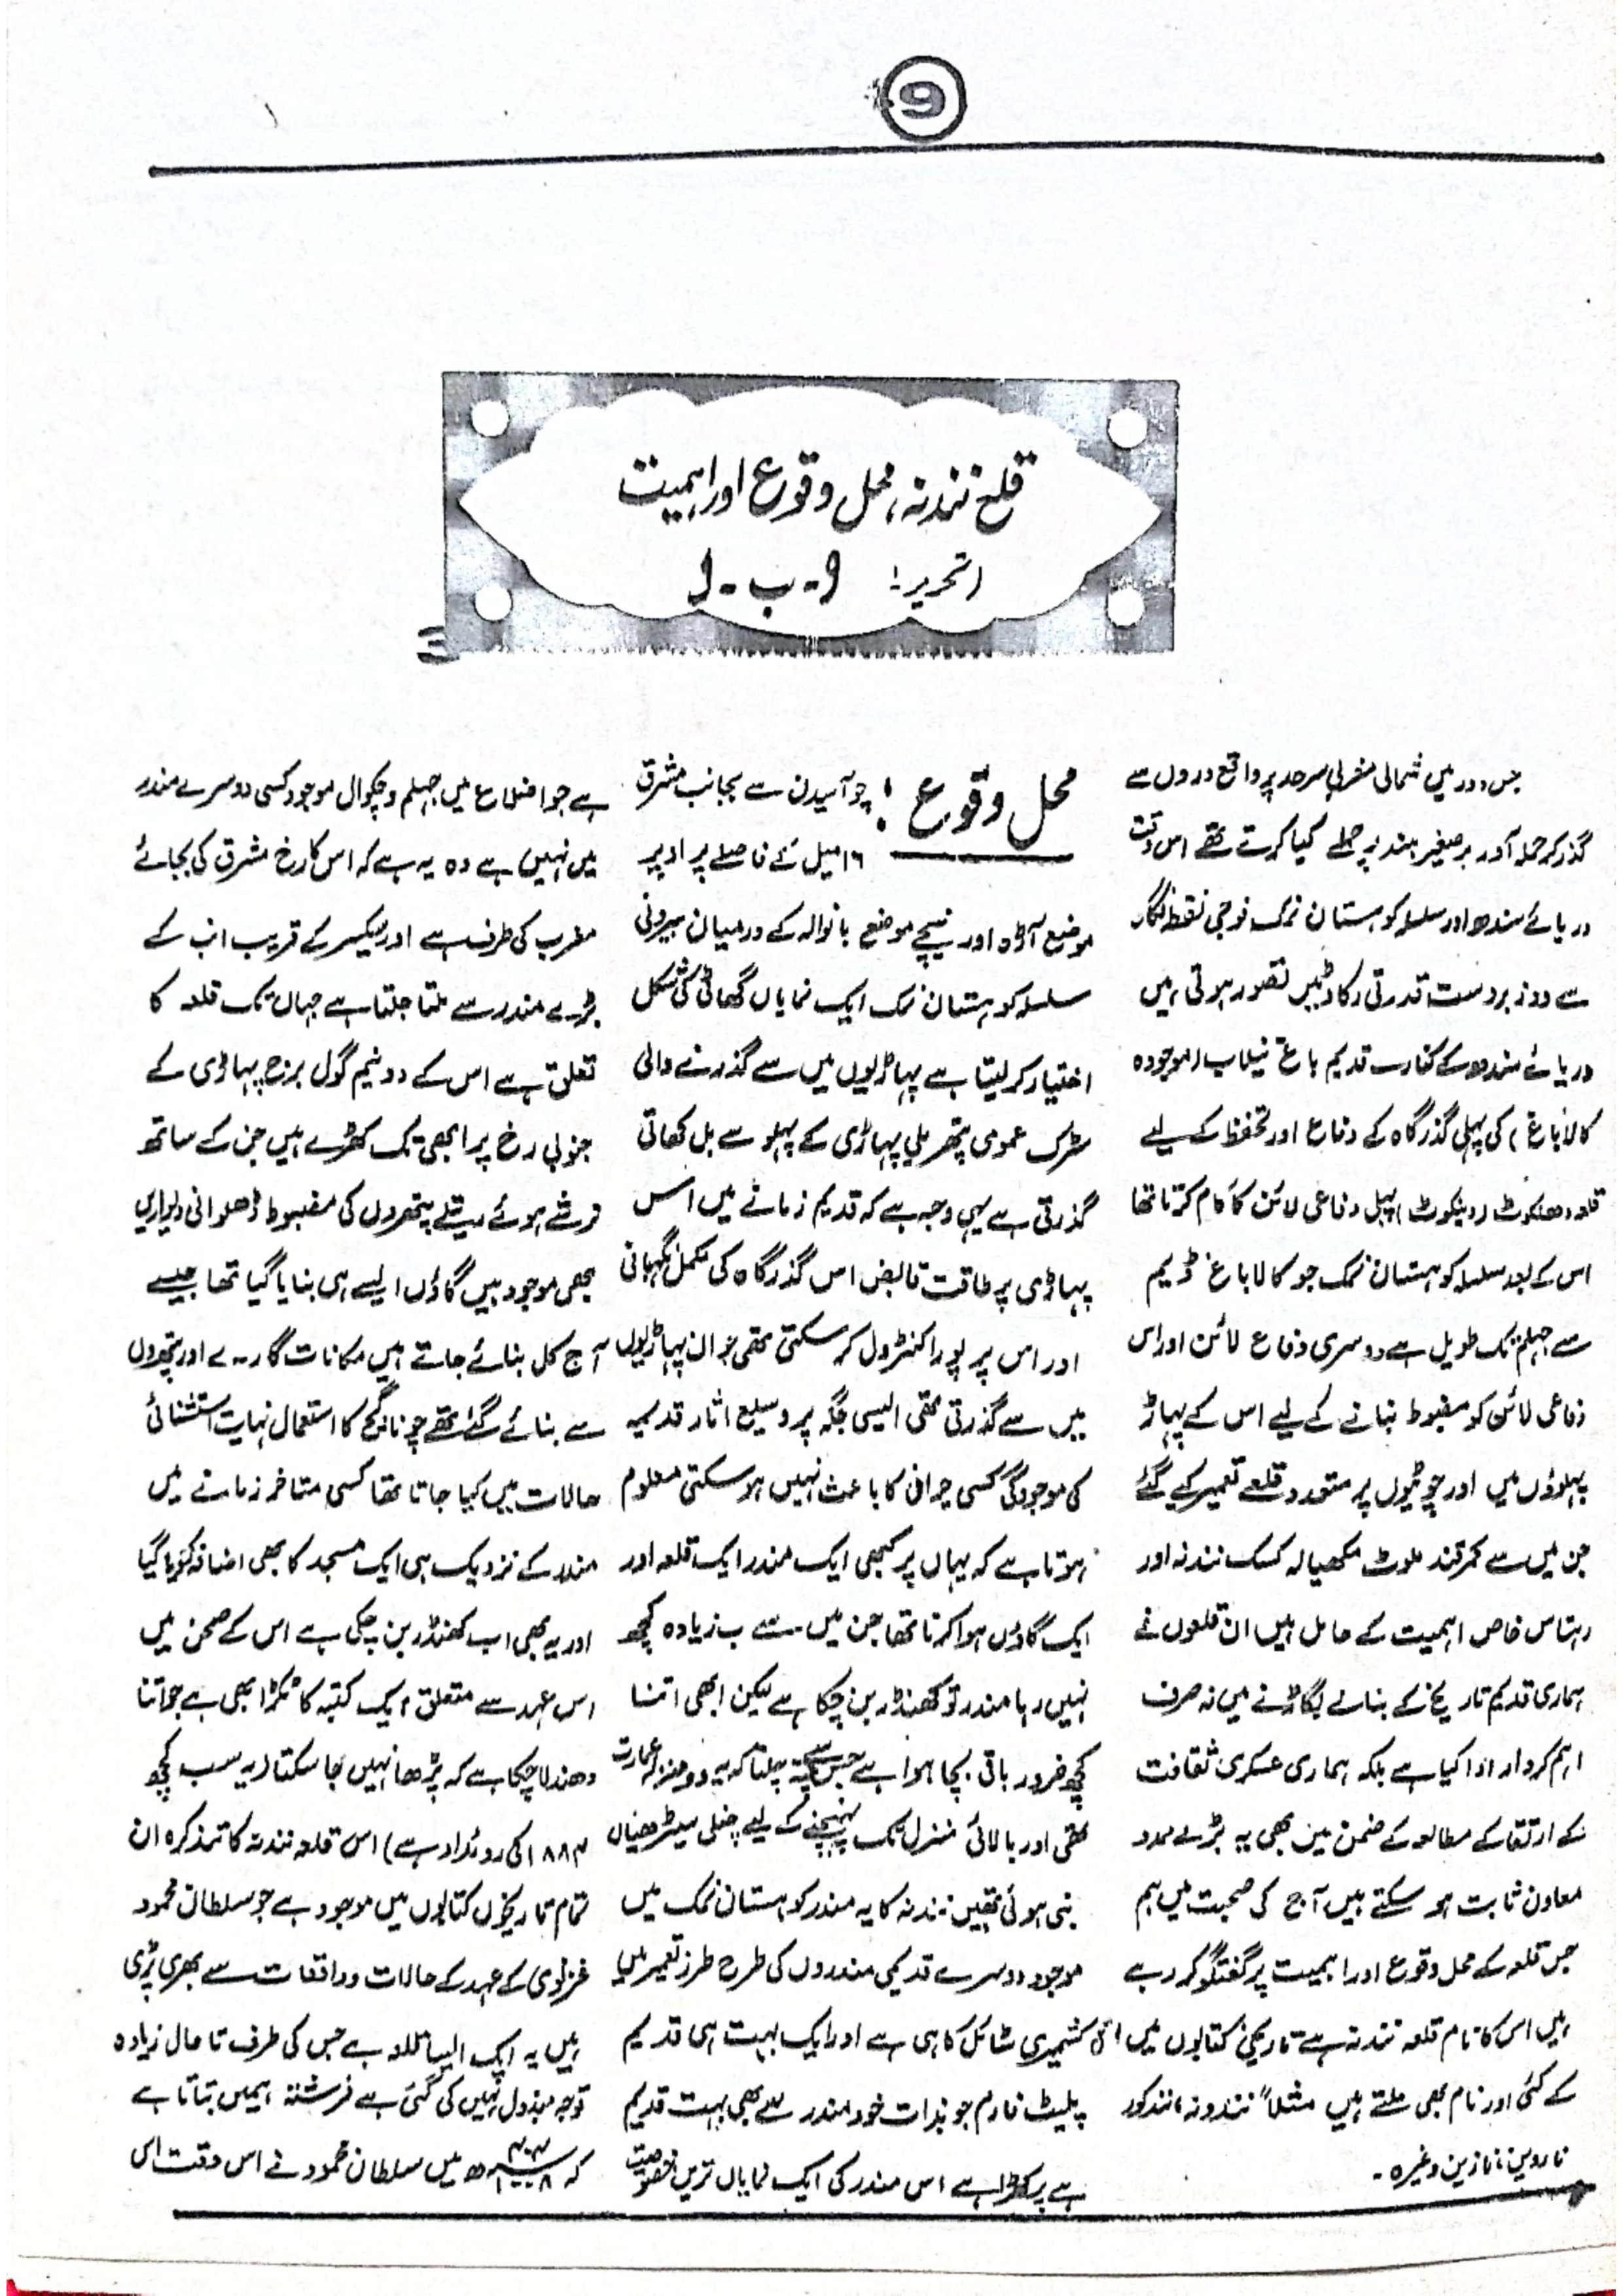 9
قلعہ نندنہ، محل وقوع اور اہمیت
(تحریر: ا-ب-ا)
جس دور میں شمالی مغربی سرحد پر واقع دروں سے
گذر کر حملہ آور برصغیر ہند پر حملے کیا کرتے تھے اس وقت
دریائے سندھ اور سلسلہ کوہستان نمک فوجی نقطہ نگاہ
سے دو زبردست قدرتی رکاوٹیں تصور ہوتی ہیں
دریائے سندھ کے کنارے قدیم باغ نیلاب (موجودہ
کالا باغ) کی پہلی گذرگاہ کے دفاع اور تحفظ کے لیے
قلعہ دھنکوٹ (دینکوٹ) پہلی دفاعی لائن کا کام کرتا تھا
اس کے بعد سلسلہ کوہستان نمک جو کالا باغ ڈیم
سے جہلم تک طویل ہے دوسری دفاع لائن اور اس
دفاعی لائن کو مضبوط بنانے کے لیے اس کے پہاڑ
پہلوؤں میں اور چوٹیوں پر متعدد قلعے تعمیر کیے گئے
جن میں سے ثمرقند ملوٹ مکھیالہ کسک نندنہ اور
رہتاس خاص اہمیت کے حامل ہیں ان قلعوں نے
ہماری قدیم تاریخ کے بنانے بگاڑنے میں نہ صرف
اہم کردار ادا کیا ہے بلکہ ہماری عسکری ثقافت
کے ارتقا کے مطالعہ کے ضمن میں بھی یہ بڑے ممد
معاون ثابت ہو سکتے ہیں آج کی صحبت میں ہم
جس قلعہ کے محل وقوع اور اہمیت پر گفتگو کر رہے
ہیں اس کا نام قلعہ نندنہ ہے تاریخی کتابوں میں اس
کے کئی اور نام بھی ملتے ہیں مثلاً نندونہ، نندکور
ناردین، نازین وغیرہ۔
محل وقوع: چوآسیدن سے بجانب مشرق
۱۶ میل کے فاصلے پر اوپر
موضع آڑہ اور نیچے موضع بانوالہ کے درمیان بیرونی
سلسلہ کوہستان نمک ایک نمایاں گھاٹی کی شکل
اختیار کر لیتا ہے پہاڑیوں میں سے گذرنے والی
سڑک عمودی پتھریلی پہاڑی کے پہلو سے بل کھاتی
گذرتی ہے یہی وجہ ہے کہ قدیم زمانے میں اس
پہاڑی پر طاقت قابض اس گذرگاہ کی مکمل نگہبانی
اور اس پر پورا کنٹرول کر سکتی تھی جو ان پہاڑیوں
میں سے گذرتی تھی ایسی جگہ پر وسیع اثار قدیمہ
کی موجودگی کسی حیرانی کا باعث نہیں ہو سکتی معلوم
ہوتا ہے کہ یہاں پر کبھی ایک مندر ایک قلعہ اور
ایک گاؤں ہوا کرتا تھا جن میں سے اب زیادہ کچھ
نہیں رہا مندر تو کھنڈر بن چکا ہے لیکن ابھی اتنا
کچھ ضرور باقی بچا ہوا ہے جس سے پتہ چلتا کہ یہ دو منزلہ عمارت
تھی اور بالائی منزل تک پہنچنے کے لیے چنلی سیڑھیاں
بنی ہوئی تھیں نندنہ کا یہ مندر کوہستان نمک میں
موجود دوسرے قدیمی مندروں کی طرح طرز تعمیر میں
کشمیری سٹائل کا ہی ہے اور ایک بہت ہی قدیم
پلیٹ فارم جو بذات خود مندر سے بھی بہت قدیم
ہے پر کھڑا ہے اس مندر کی ایک نمایاں ترین خصوصیت
ہے جو اضلاع میں جہلم و چکوال موجود کسی دوسرے مندر
میں نہیں ہے وہ یہ ہے کہ اس کا رخ مشرق کی بجائے
مغرب کی طرف ہے اور سیکسر کے قریب انب کے
بڑے مندر سے ملتا جلتا ہے جہاں تک قلعہ کا
تعلق ہے اس کے دو نیم گول برج پہاڑی کے
جنوبی رخ پر ابھی تک کھڑے ہیں جن کے ساتھ
ترشے ہوئے ریتلے پتھروں کی مضبوط ڈھلوانی دیواریں
بھی موجود ہیں گاؤں ایسے ہی بنایا گیا تھا جیسے
آج کل بنائے جاتے ہیں مکانات گارے اور پتھروں
سے بنائے گئے تھے چونا گچ کا استعمال نہایت استثنائی
حالات میں کیا جاتا تھا کسی متاخر زمانے میں
مندر کے نزدیک ہی ایک مسجد کا بھی اضافہ کر دیا گیا
اور یہ بھی اب کھنڈر بن چکی ہے اس کے صحن میں
اس عہد سے متعلق ایک کتبہ کا ٹکڑا بھی ہے جو اتنا
دھندلا چکا ہے کہ پڑھا نہیں جا سکتا (یہ سب کچھ
۱۸۸۳ کی روئداد ہے) اس قلعہ نندنہ کا تذکرہ ان
تمام تاریخی کتابوں میں موجود ہے جو سلطان محمود
غزنوی کے عہد کے حالات و واقعات سے بھری پڑی
ہیں یہ ایک ایسا قلعہ ہے جس کی طرف تا حال زیادہ
توجہ مبذول نہیں کی گئی ہے فرشتہ ہمیں بتاتا ہے
کہ ھ میں سلطان محمود نے اس وقت اس